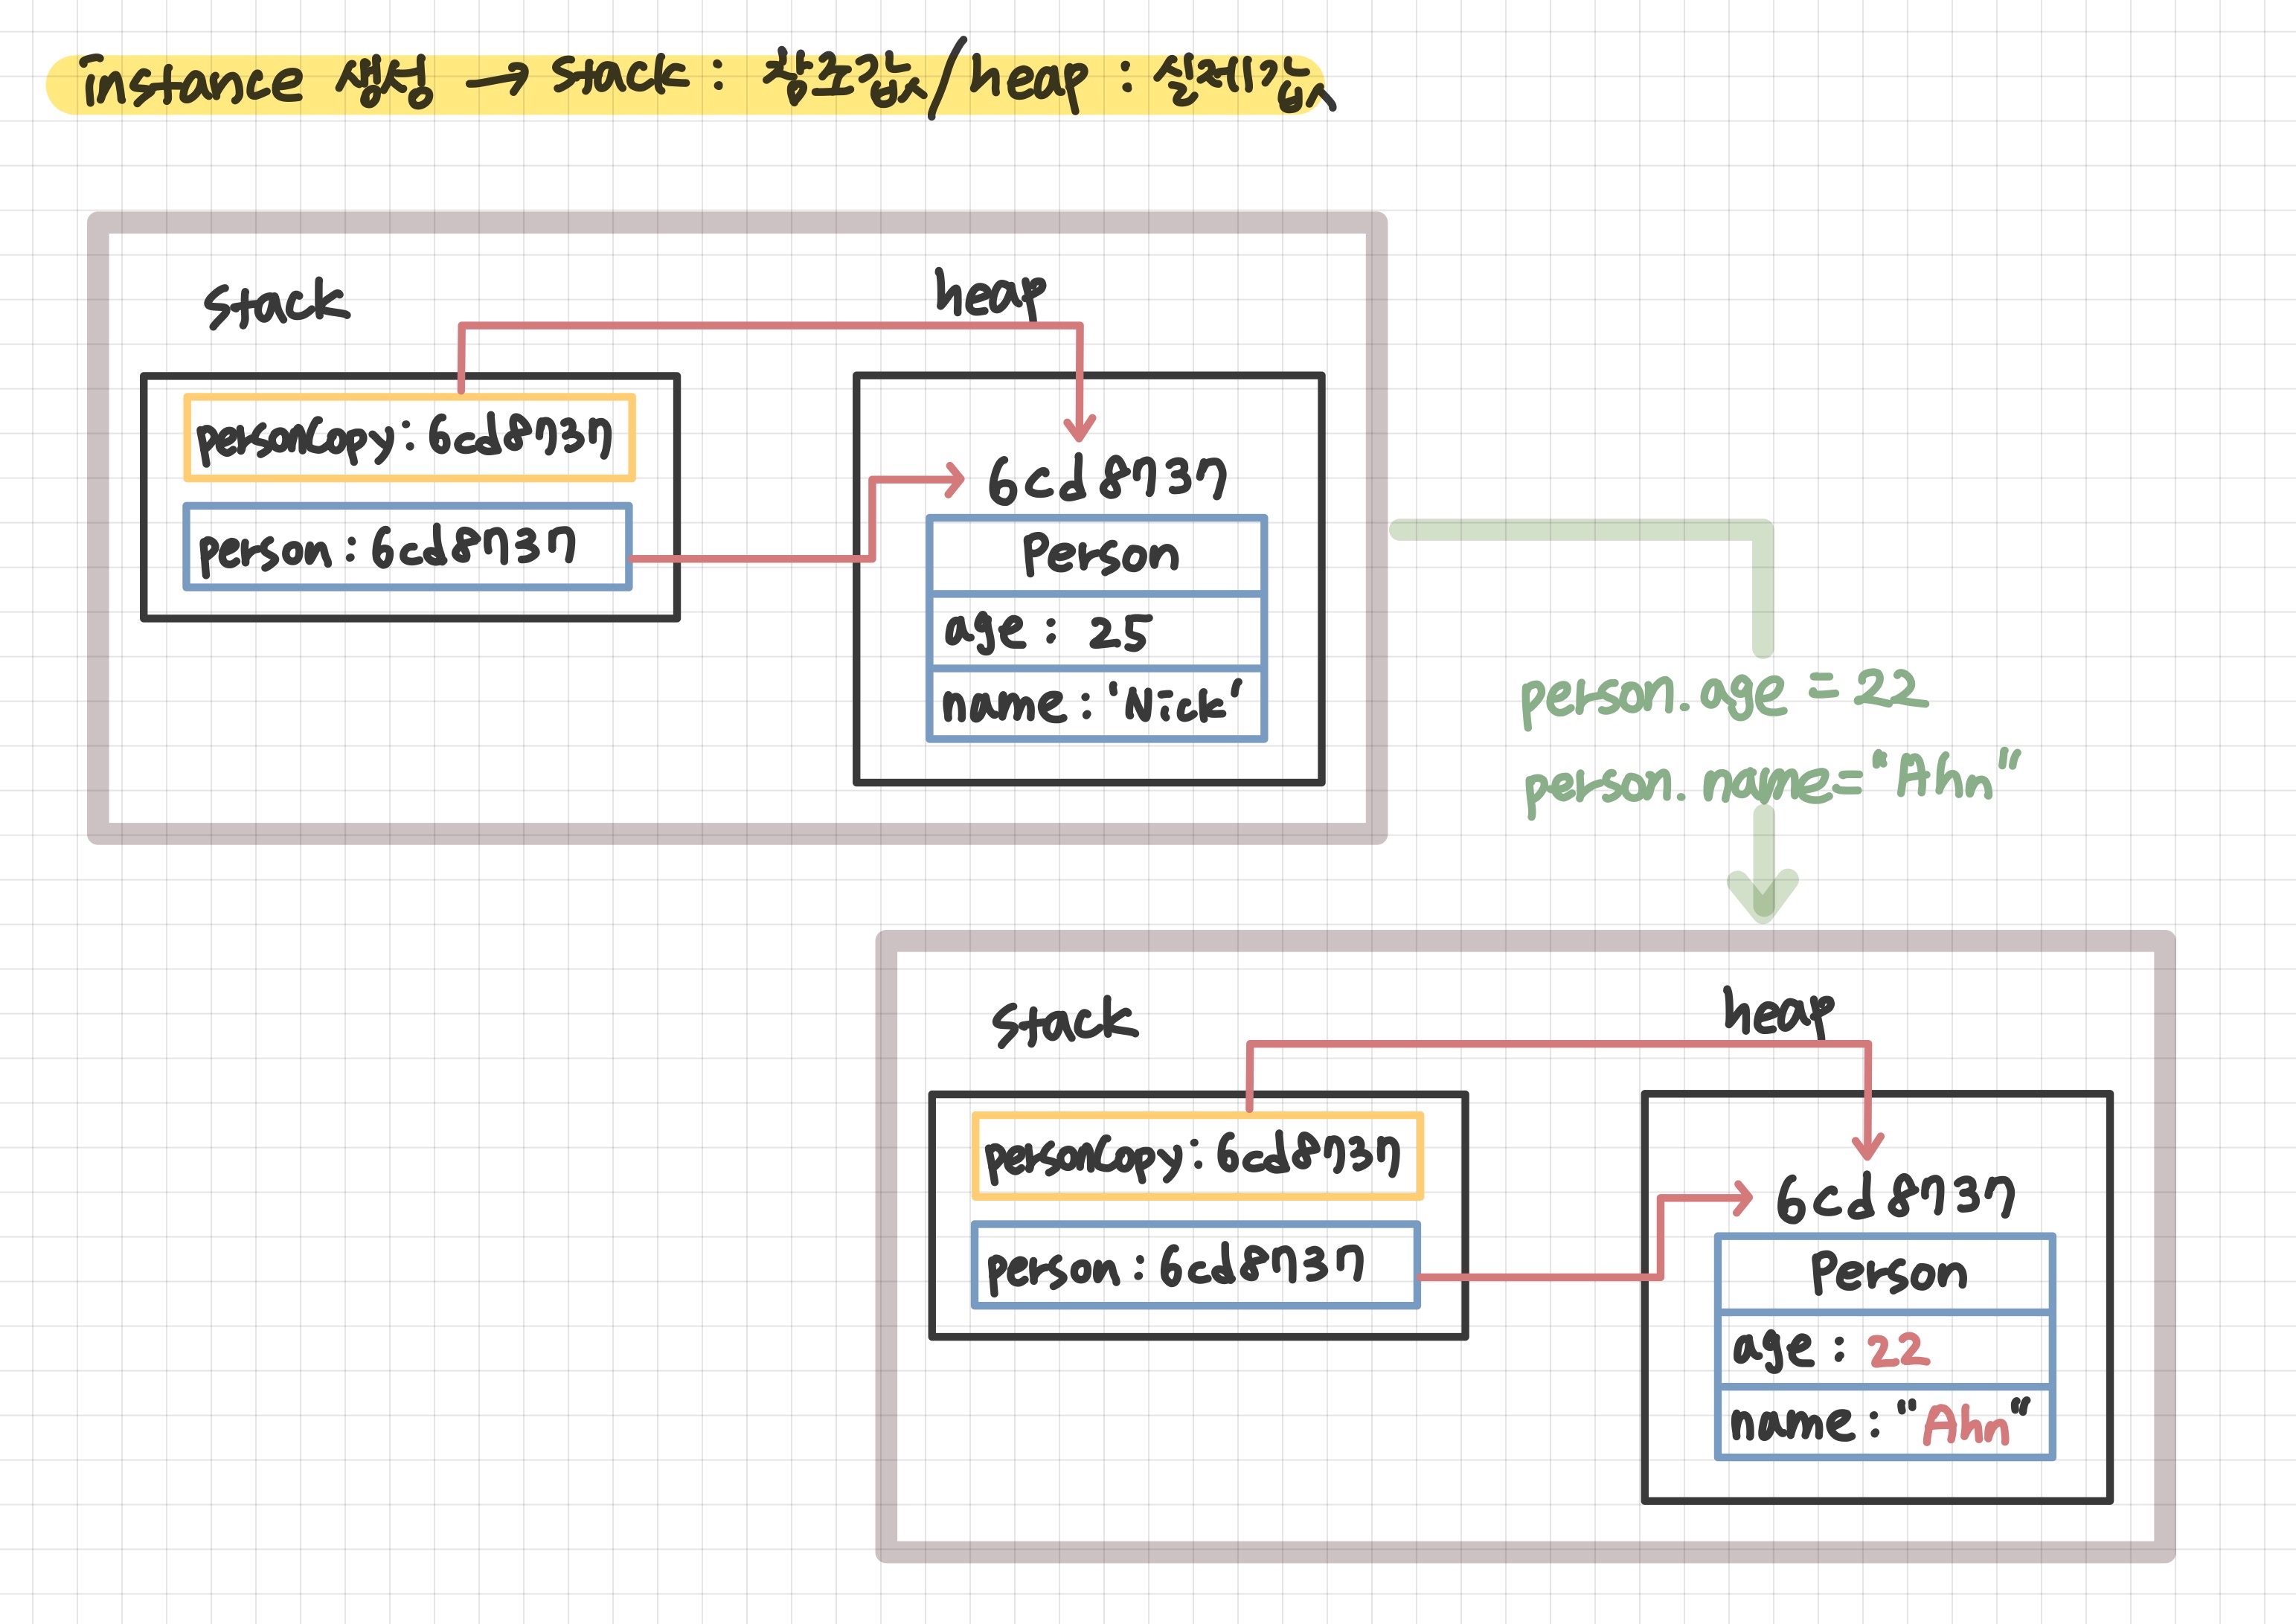 instance 생성 → stack : 참조값 / heap : 실제값
stack
heap
personCopy : 6cd87737
person : 6cd87737
6cd87737
Person
age : 25
name : 'Nick'
person.age = 22
person.name="Ahn"
stack
heap
personCopy : 6cd87737
person : 6cd87737
6cd87737
Person
age : 22
name : "Ahn"